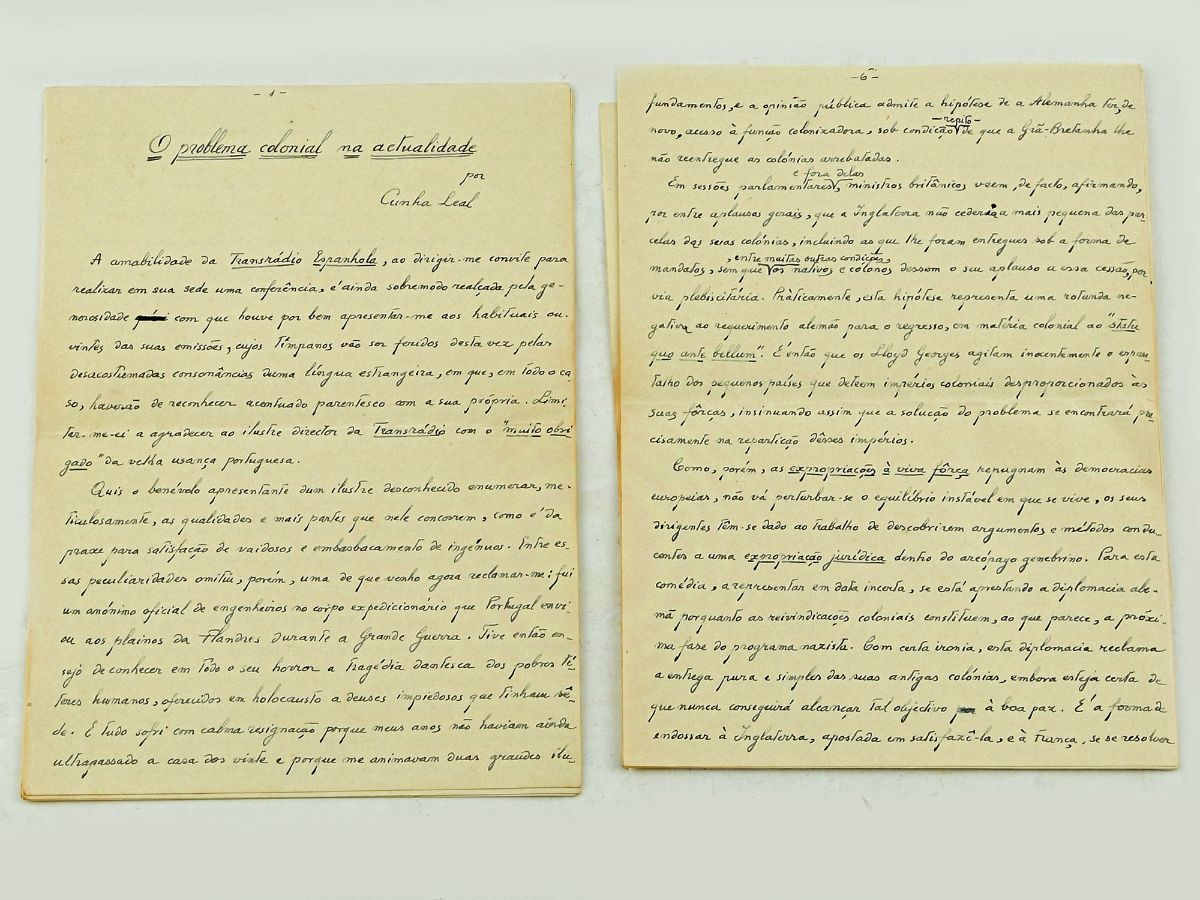 - 1 -
O problema colonial na actualidade
por
Cunha Leal
A amabilidade da Transrádio Espanhola, ao dirigir-me convite para
realizar em sua sede uma conferência, é ainda sobremodo realçada pela ge-
nerosidade com que houve por bem apresentar-me aos habituais ou-
vintes das suas emissões, cujos tímpanos vão ser feridos desta vez pelas
desacostumadas consonâncias duma língua estrangeira, em que, em todo o ca-
so, haverão de reconhecer acentuado parentesco com a sua própria. Limi-
tar-me-ei a agradecer ao ilustre director da Transrádio com o "muito obri-
gado" da velha usança portuguesa.
Quis o benévolo apresentante dum ilustre desconhecido enumerar, me-
ticulosamente, as qualidades e mais partes que nele concorrem, como é da
praxe para satisfação de vaidosos e embasbacamento de ingénuos. Entre es-
sas peculiaridades omitiu, porém, uma de que venho agora reclamar-me: fui
um anónimo oficial de engenheiros no corpo expedicionário que Portugal envi-
ou aos plainos da Flandres durante a Grande Guerra. Tive então en-
sejo de conhecer em todo o seu horror a tragédia dantesca dos pobres tí-
teres humanos, oferecidos em holocausto a deuses impiedosos que tinham sê-
de. E tudo sofri com calma resignação porque meus anos não haviam ainda
ultrapassado a casa dos vinte e porque me animavam duas grandes ilu-
- 6 -
fundamentos, e a opinião pública admite a hipótese de a Alemanha ter, de
novo, acesso à função colonizadora, sob condição - repito - de que a Grã-Bretanha lhe
não reentregue as colónias arrebatadas.
Em sessões parlamentares e fora delas, ministros britânicos veem, de facto, afirmando,
por entre aplausos gerais, que a Inglaterra não cederia a mais pequena das par-
celas das seias colónias, incluindo as que lhe foram entregues sob a forma de
mandatos, sem que, entre muitas outras condições, os nativos e colonos dessem o seu aplauso a essa cessão, por
via plebiscitária. Pràticamente, esta hipótese representa uma rotunda ne-
gativa ao requerimento alemão para o regresso, em matéria colonial ao "statu
quo ante bellum". É então que os Lloyd Georges agitam inocentemente o espan-
talho dos pequenos países que deteem impérios coloniais desproporcionados às
suas fôrças, insinuando assim que a solução do problema se encontrará pre-
cisamente na repartição dêsses impérios.
Como, porém, as expropriações à viva fôrça repugnam às democracias
europeias, não vá perturbar-se o equilíbrio instável em que se vive, os seus
dirigentes têm-se dado ao trabalho de descobrirem argumentos e métodos condu-
centes a uma expropriação jurídica dentro do areópago genebrino. Para esta
comédia, a representar em data incerta, se está aprestando a diplomacia ale-
mã porquanto as reivindicações coloniais constituem, ao que parece, a próxi-
ma fase do programa nazista. Com certa ironia, esta diplomacia reclama
a entrega pura e simples das suas antigas colónias, embora esteja certa de
que nunca conseguirá alcançar tal objectivo à boa paz. É a forma de
endossar à Inglaterra, apostada em satisfazê-la, e à França, se se resolver